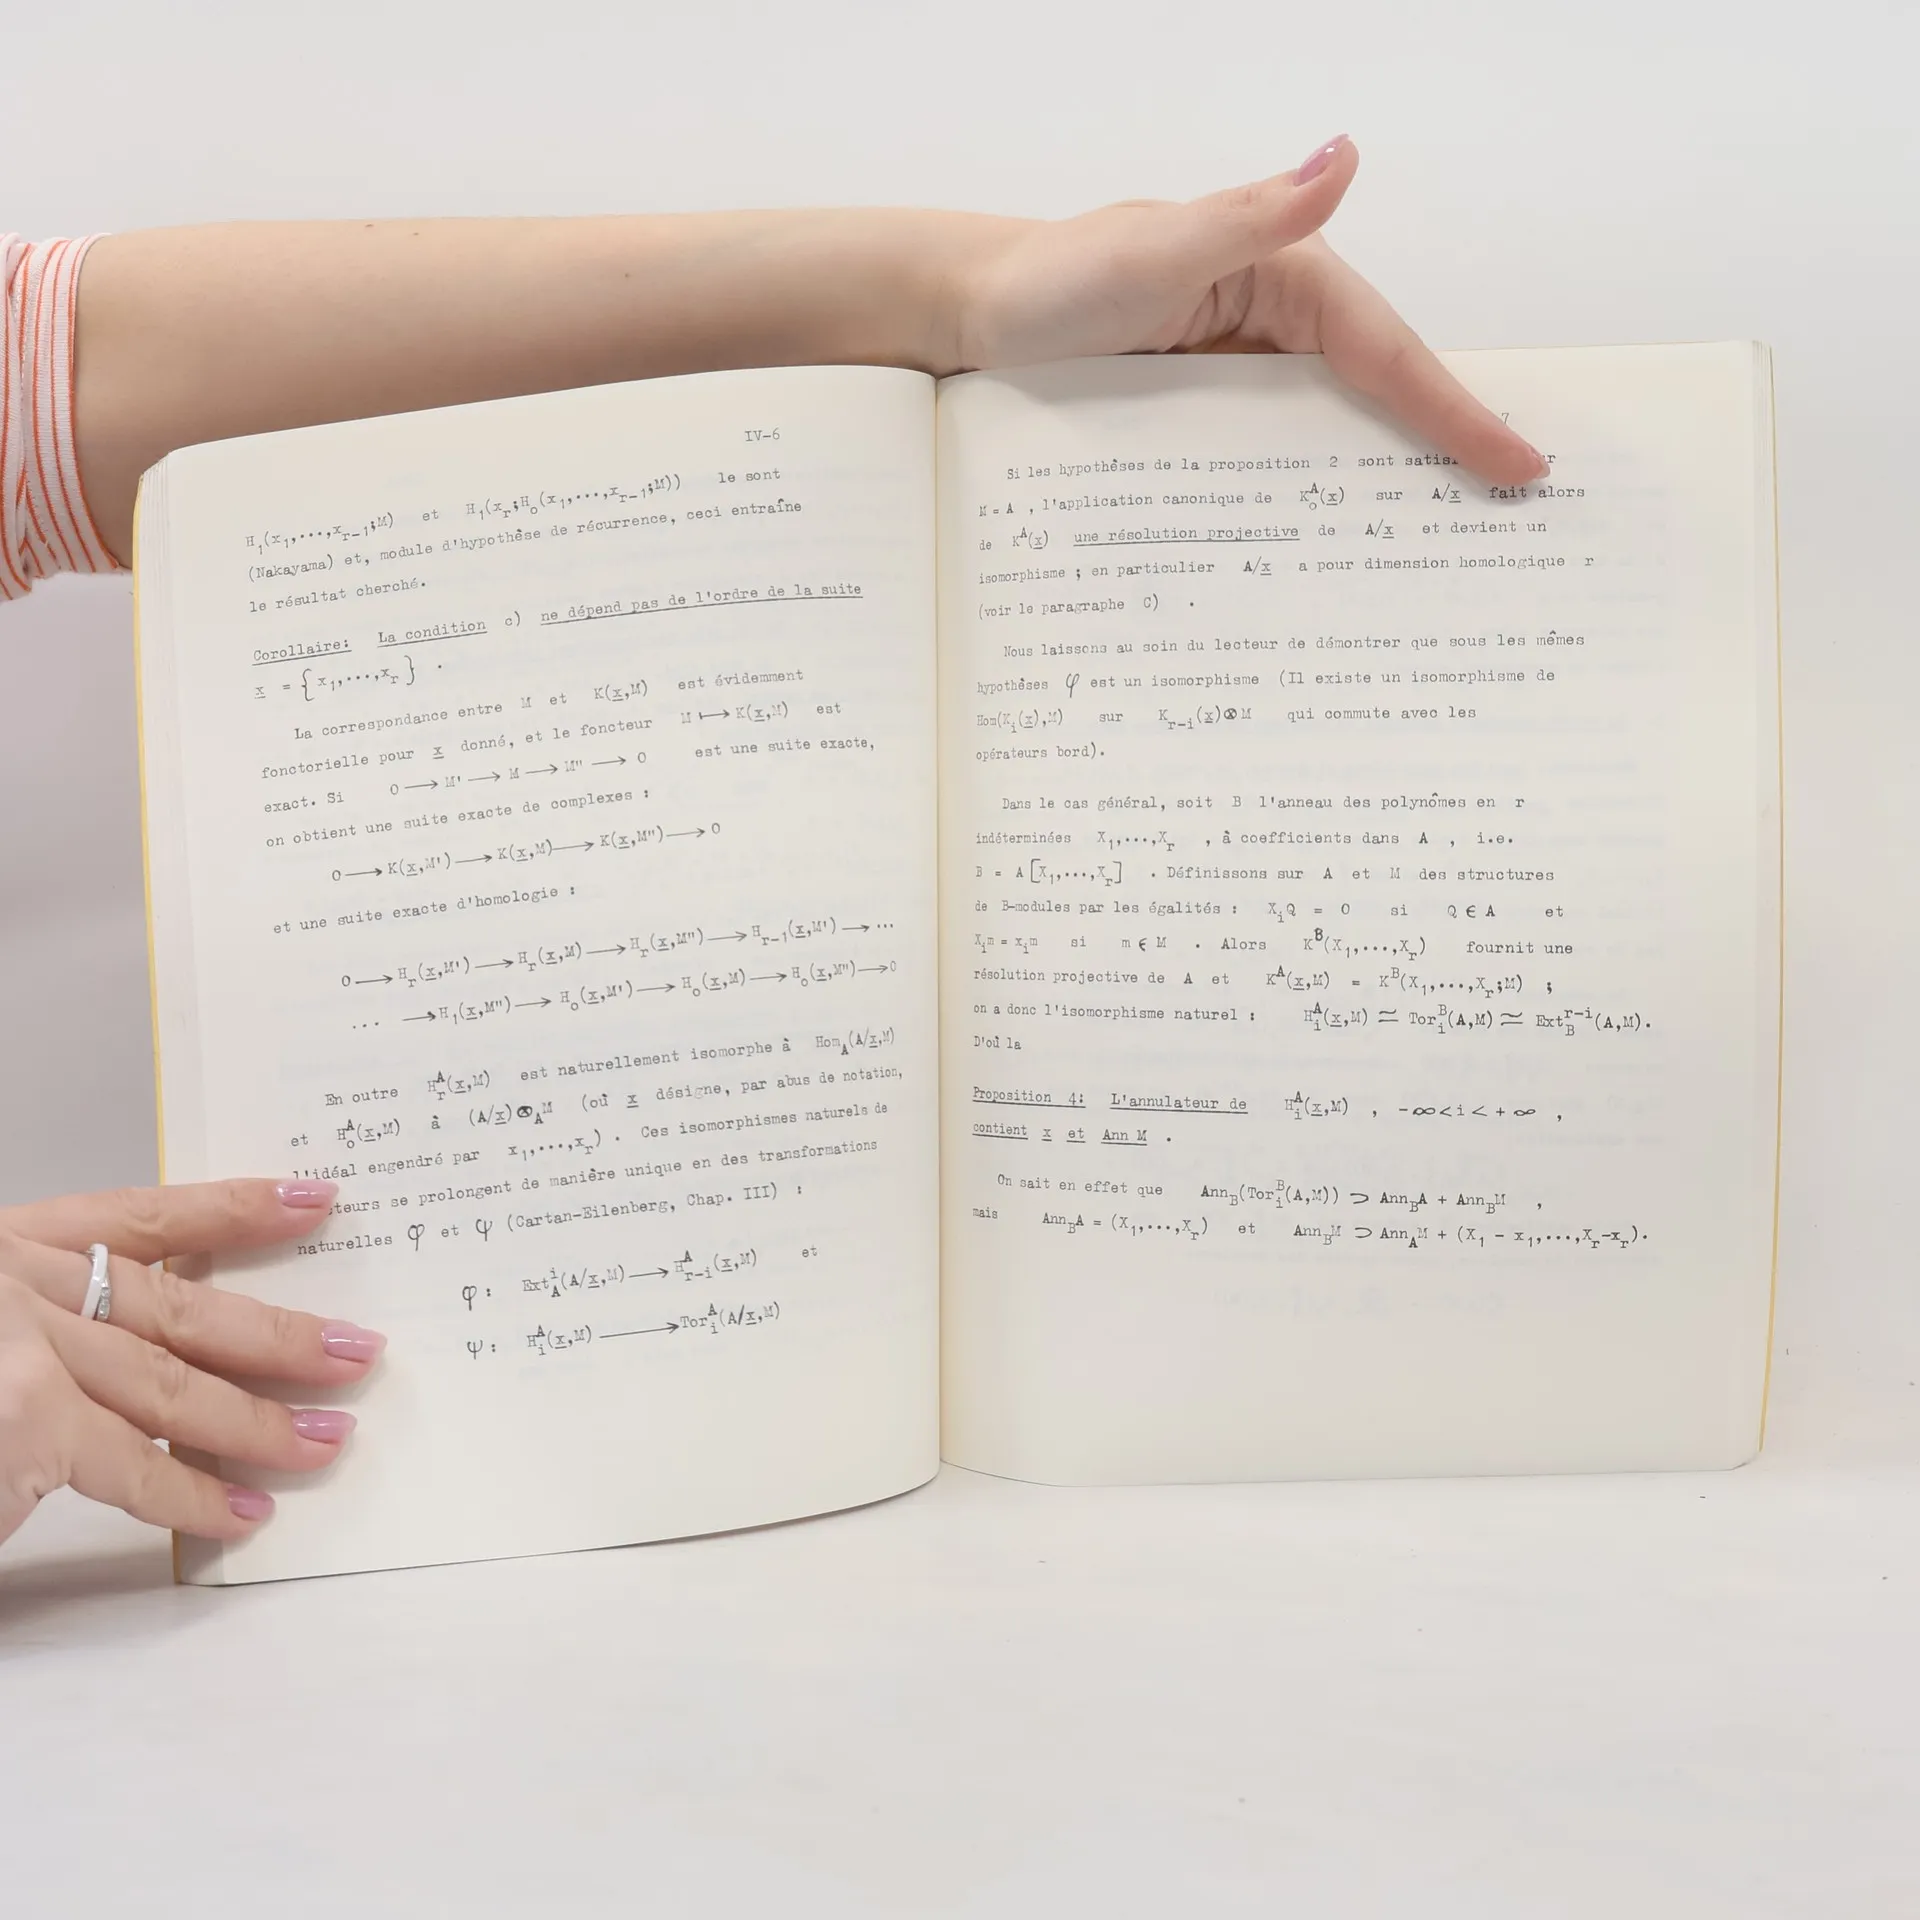 IV-6
H₁(x₁,...,xᵣ₋₁;M) et H₁(xᵣ;H₀(x₁,...,xᵣ₋₁;M)) le sont
(Nakayama) et, module d'hypothèse de récurrence, ceci entraîne
le résultat cherché.
Corollaire: La condition c) ne dépend pas de l'ordre de la suite
x = {x₁,...,xᵣ} .
La correspondance entre M et K(x,M) est évidemment
fonctorielle pour x donné, et le foncteur M ↦ K(x,M) est
exact. Si 0 → M' → M → M" → 0 est une suite exacte,
on obtient une suite exacte de complexes :
0 → K(x,M') → K(x,M) → K(x,M") → 0
et une suite exacte d'homologie :
0 → Hᵣ(x,M') → Hᵣ(x,M) → Hᵣ(x,M") → Hᵣ₋₁(x,M') → ...
... → H₁(x,M") → H₀(x,M') → H₀(x,M) → H₀(x,M") → 0
En outre Hᵣᴬ(x,M) est naturellement isomorphe à Hom_A(A/x,M)
et H₀ᴬ(x,M) à (A/x)⊗_A M (où x désigne, par abus de notation,
l'idéal engendré par x₁,...,xᵣ) . Ces isomorphismes naturels de
se prolongent de manière unique en des transformations
naturelles φ et ψ (Cartan-Eilenberg, Chap. III) :
φ : Ext_A^i(A/x,M) → H_{r-i}^A(x,M) et
ψ : H_i^A(x,M) → Tor_i^A(A/x,M)
7
Si les hypothèses de la proposition 2 sont
M = A , l'application canonique de K₀ᴬ(x) sur A/x fait alors
de Kᴬ(x) une résolution projective de A/x et devient un
isomorphisme ; en particulier A/x a pour dimension homologique r
(voir le paragraphe C) .
Nous laissons au soin du lecteur de démontrer que sous les mêmes
hypothèses φ est un isomorphisme (Il existe un isomorphisme de
Hom(K_i(x),M) sur K_{r-i}(x)⊗M qui commute avec les
opérateurs bord).
Dans le cas général, soit B l'anneau des polynômes en r
indéterminées X₁,...,Xᵣ , à coefficients dans A , i.e.
B = A[X₁,...,Xᵣ] . Définissons sur A et M des structures
de B-modules par les égalités : X_iQ = 0 si Q ∈ A et
X_im = x_im si m ∈ M . Alors Kᴮ(X₁,...,Xᵣ) fournit une
résolution projective de A et Kᴬ(x,M) = Kᴮ(X₁,...,Xᵣ;M) ;
on a donc l'isomorphisme naturel : H_i^A(x,M) ≃ Tor_i^B(A,M) ≃ Ext_B^{r-i}(A,M).
D'où la
Proposition 4: L'annulateur de H_i^A(x,M) , -∞<i< +∞ ,
contient x et Ann M .
On sait en effet que Ann_B(Tor_i^B(A,M)) ⊃ Ann_BA + Ann_BM ,
mais Ann_BA = (X₁,...,Xᵣ) et Ann_BM ⊃ Ann_AM + (X₁ - x₁,...,Xᵣ-xᵣ).